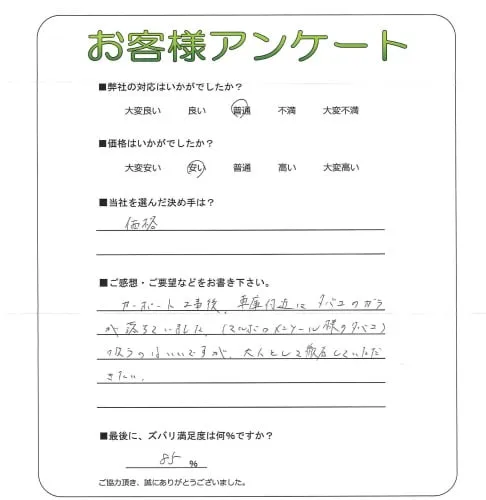 お客様アンケート
■弊社の対応はいかがでしたか？
大変良い 良い 普通 不満 大変不満
■価格はいかがでしたか？
大変安い 安い 普通 高い 大変高い
■当社を選んだ決め手は？
価格
■ご感想・ご要望などをお書き下さい。
カーポート工事後、車庫付近にタバコのガラ
が落ちていました。(マルボロメンソール様のタバコ)
吸うのはいいですが、大人として徹底していただ
きたい。
■最後に、ズバリ満足度は何％ですか？
85 %
ご協力頂き、誠にありがとうございました。